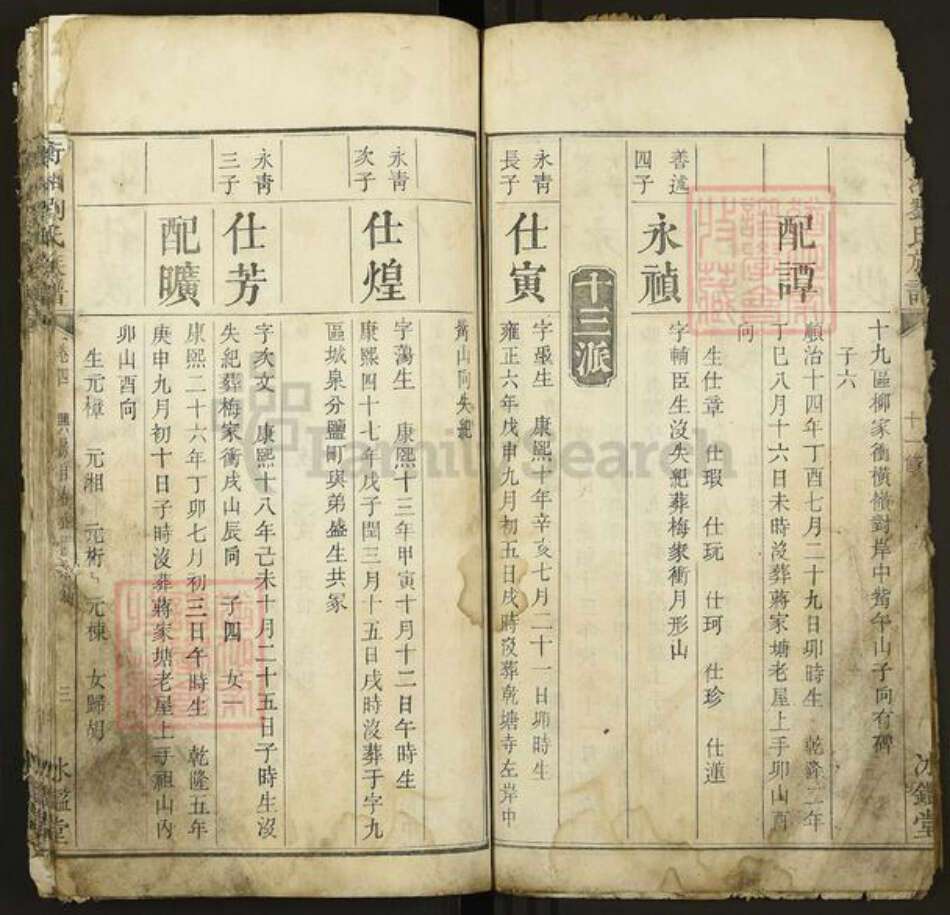 十九區柳家衝橫嶺對岸中嘴午山子向有碑
子六
配譚
順治十四年丁酉七月二十九日卯時生 乾隆二年
丁巳八月十六日未時沒葬蔣家塘老屋上手卯山酉
向
生仕章 仕瑕 仕玩 仕珂 仕珍 仕蓮
善述
四子
永禎
字輔臣生沒失紀葬梅家衝月形山
十三派
永靑
長子
仕寅
生 康熙十年辛亥七月二十一日卯時生
雍正六年戊申九月初五日戌時沒葬乾塘寺左岸中
山向失紀
永靑
次子
仕煌
生 康熙十三年甲寅十月十二日午時生
康熙四十七年戊子閏三月十五日戌時沒葬于字九
區城泉分鹽町與弟盛生共冢
永靑
三子
仕芳
字次文 康熙十八年己未十月二十五日子時生沒
失紀葬梅家衝戌山辰向 子四 女一
配曠
康熙二十六年丁卯七月初三日午時生 乾隆五年
庚申九月初十日子時沒葬蔣家塘老屋上手祖山內
卯山酉向
生元樟 元湘 元術 元棟 女歸胡
劉氏族譜
卷四
三
冰鑑堂
FamilySearch